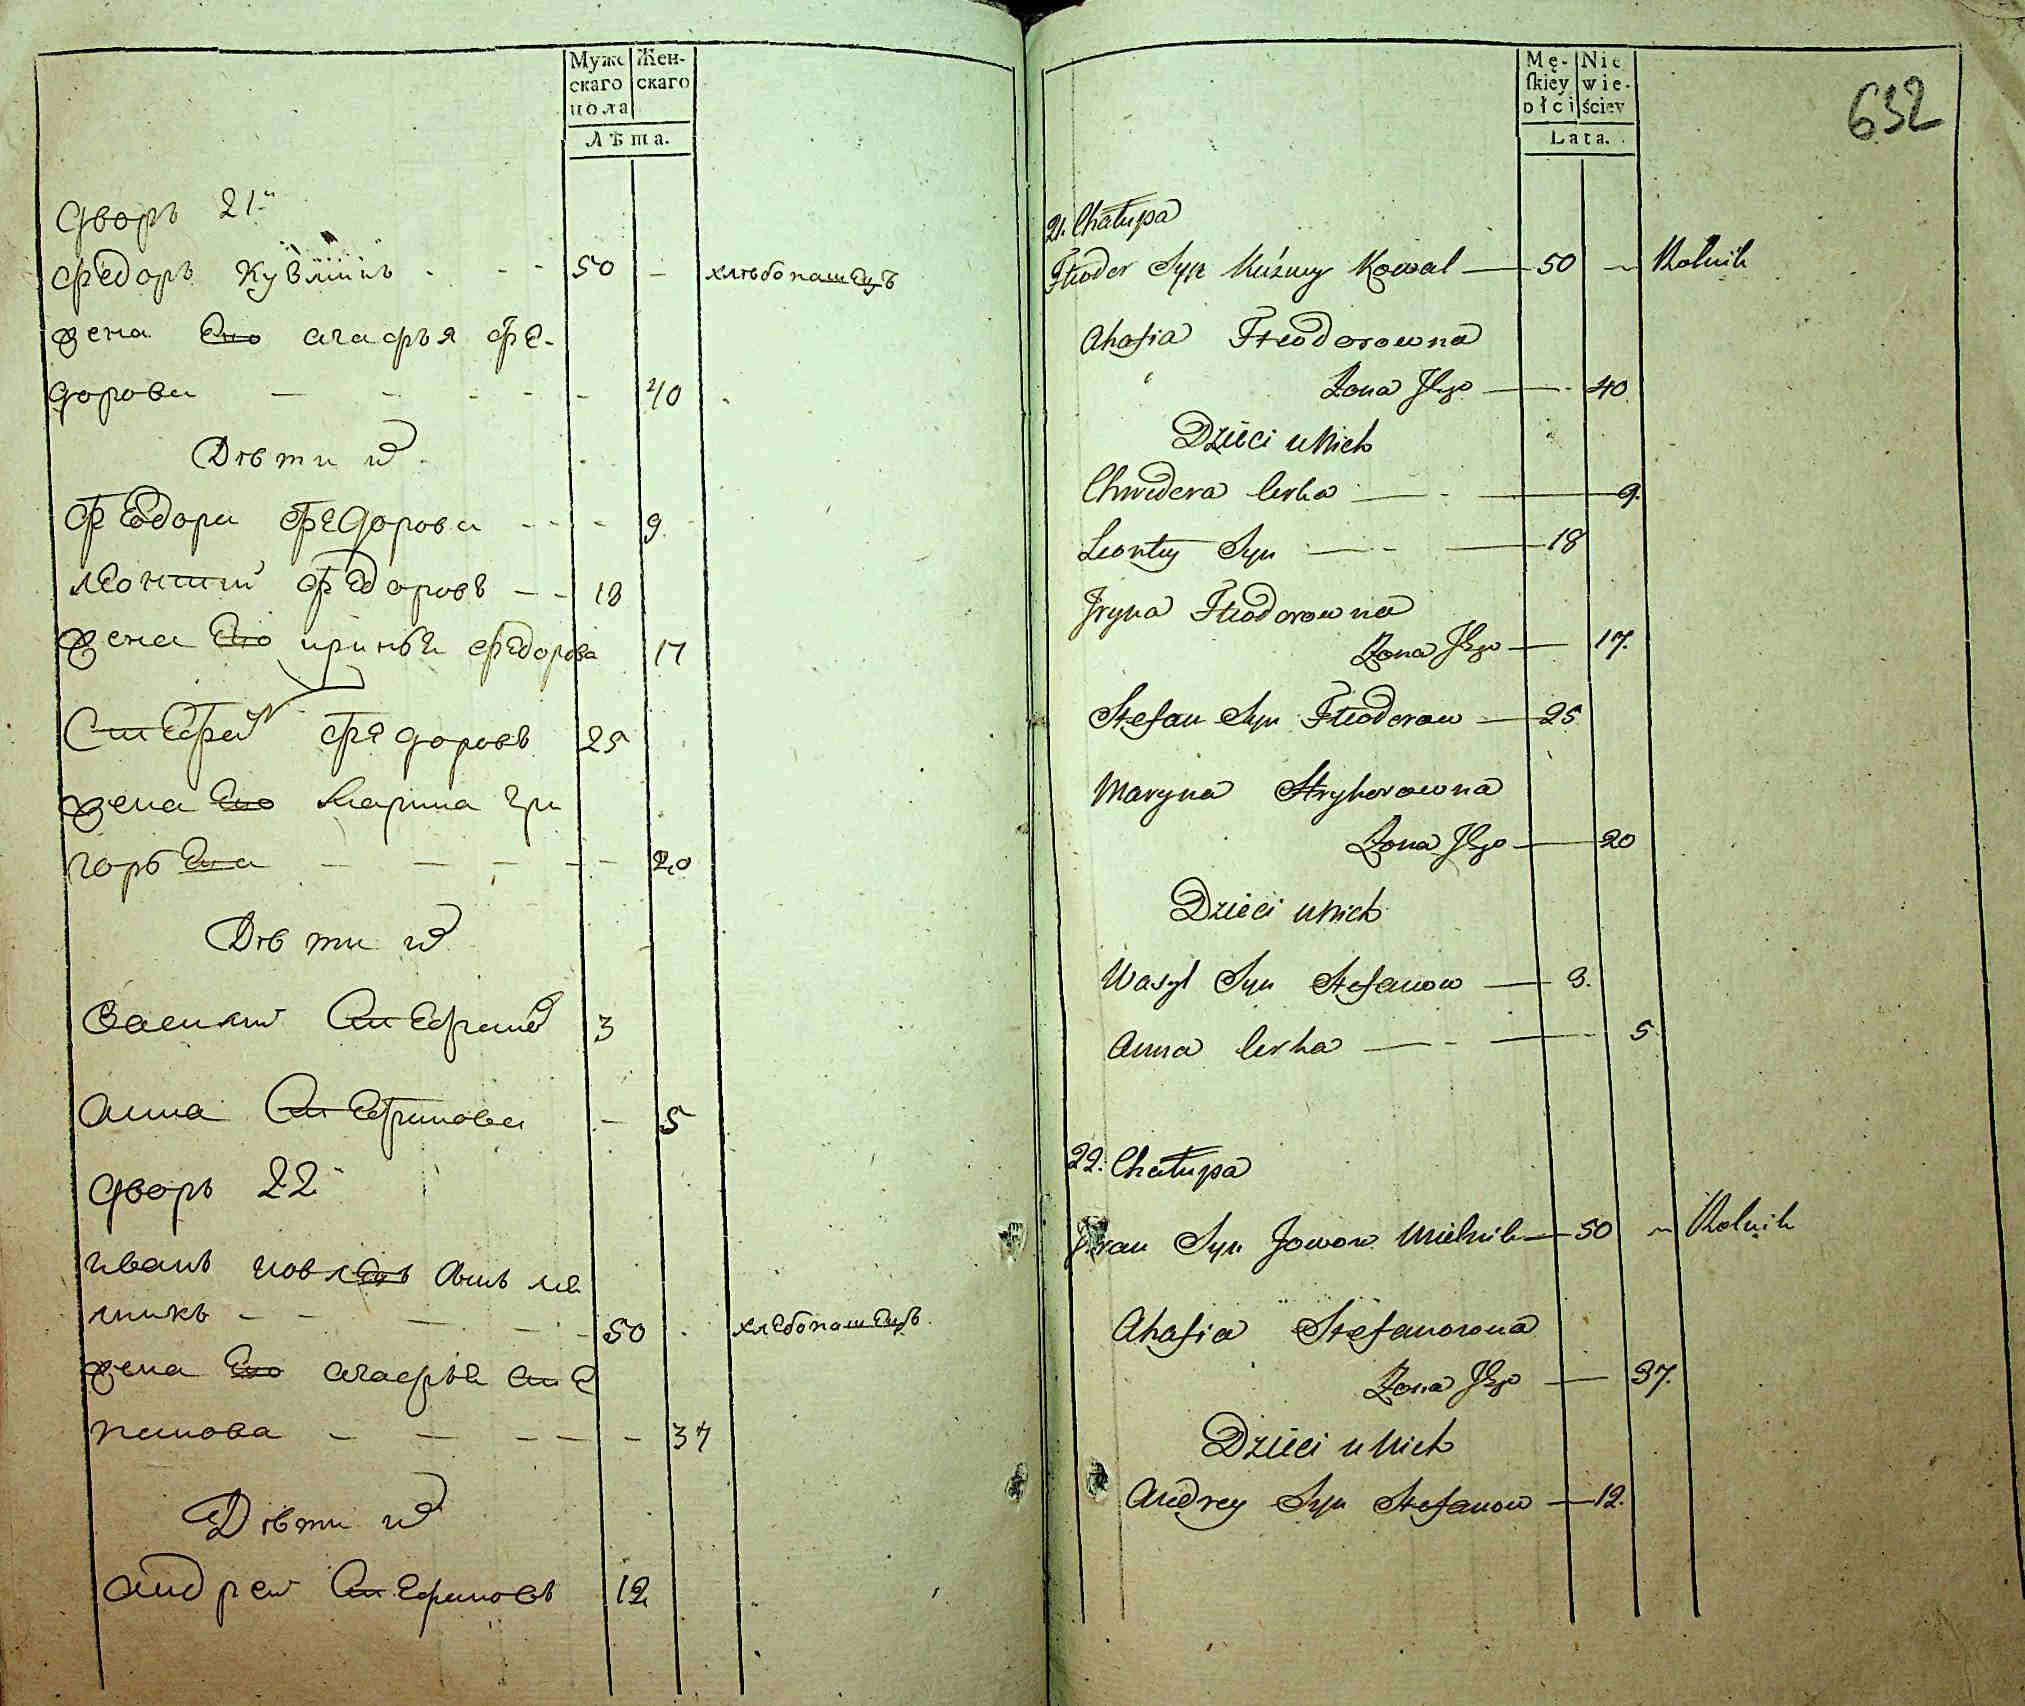 Мужс
скаго
пола
Жен-
скаго
Лѣта.
дворъ 21й
федоръ Кузминъ - - - 50 - хлѣбопашецъ
жена Его агафья фе-
дорова - - - - - 40
Дѣти их
федора федорова - - - 9
леонтий федоровъ - - 18
жена Его ириньЯ федорова 17
Стефан федоровъ 25
жена Его Марина гри
горьева - - - - - 20
Дѣти их
василий Стефанов 3
анна Стефанова - 5
дворъ 22
иванъ
никъ - - - - 50 хлебопашецъ
жена Его агафья сте
панова - - - - - 37
Дѣти их
андрей Стефановъ 12
Mę-
skiey
płci
Nie
wie-
ściey
Lata.
632
21. Chałupa
Fteodor Syn Kuźmy Kowal — 50 ~ Rolnik
Ahafia Fteodorowna
Żona Jego — 40
Dzieci u Nich
Chwedera Corka — - — 9.
Leonty Syn — - — 18
Jryna Fteodorowna
Żona Jego — 17.
Stefan Syn Fteodorow — 25
Maryna Hryhorowna
Żona Jego — 20
Dzieci u Nich
Wasyl Syn Stefanow — 3.
Anna Corka — - — 5
22. Chałupa
Jwan Syn Jowow Mielnik — 50 ~ Rolnik
Ahafia Stefanowna
Żona Jego — 37.
Dzieci u Nich
Andrey Syn Stefanow — 12.